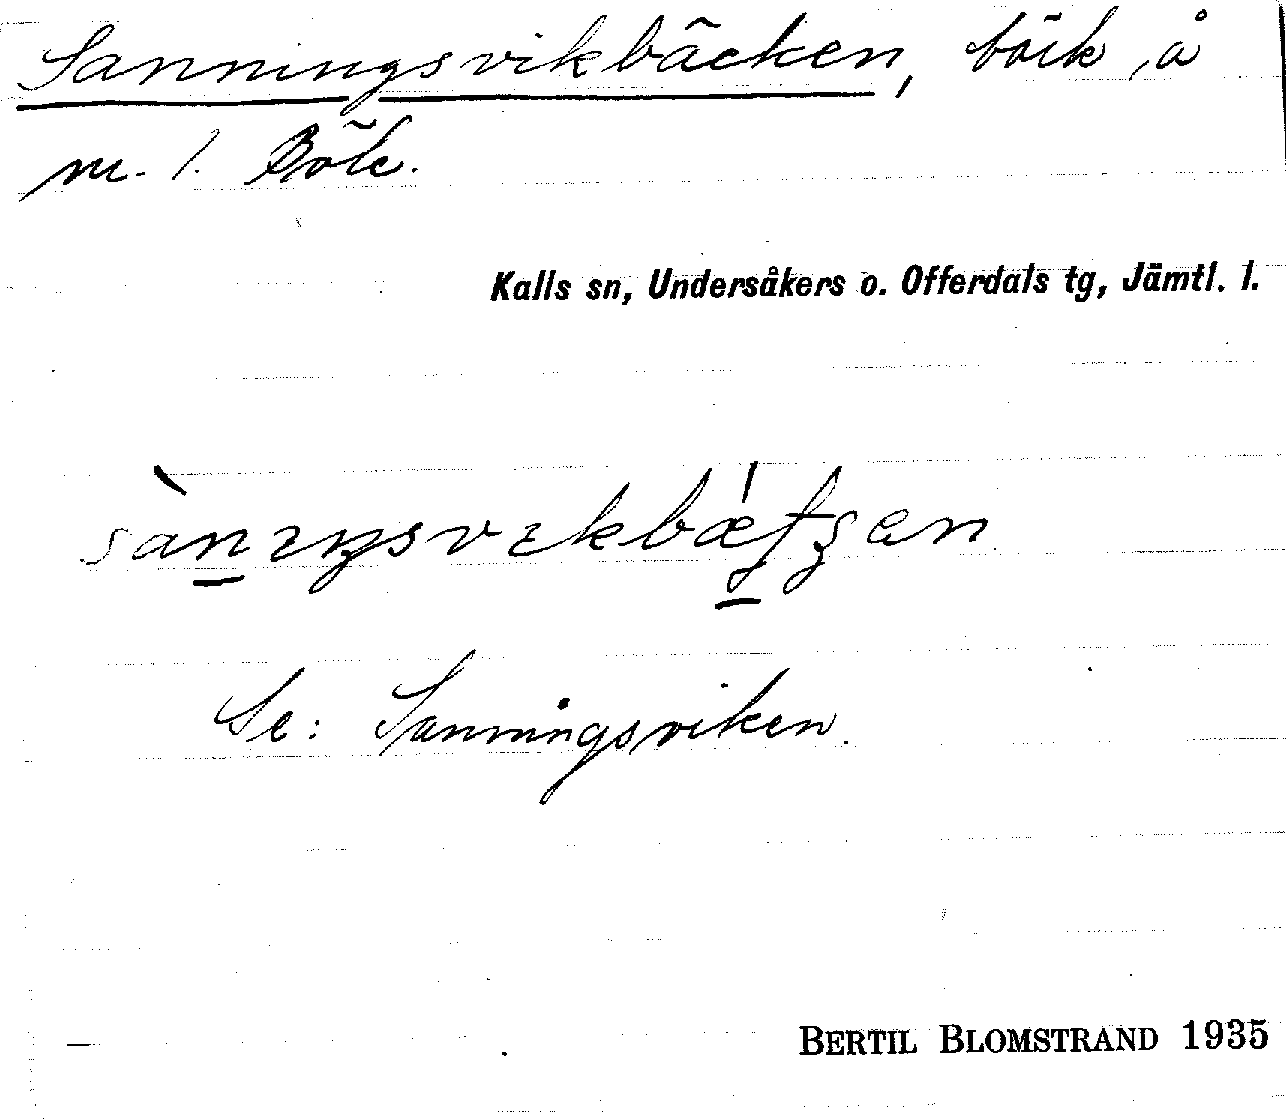 Sanningsvikbäcken, bäck å
m. l. Böle.
Kalls sn, Undersåkers o. Offerdals tg, Jämtl. l.
Se: Sanningsviken.
BERTIL BLOMSTRAND 1935